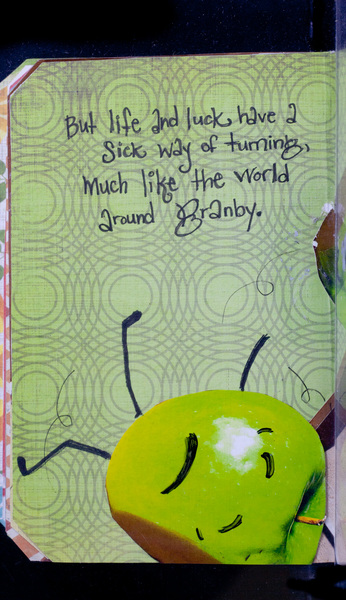 But life and luck have a
Sick way of turning,
Much like the world
around Granby.